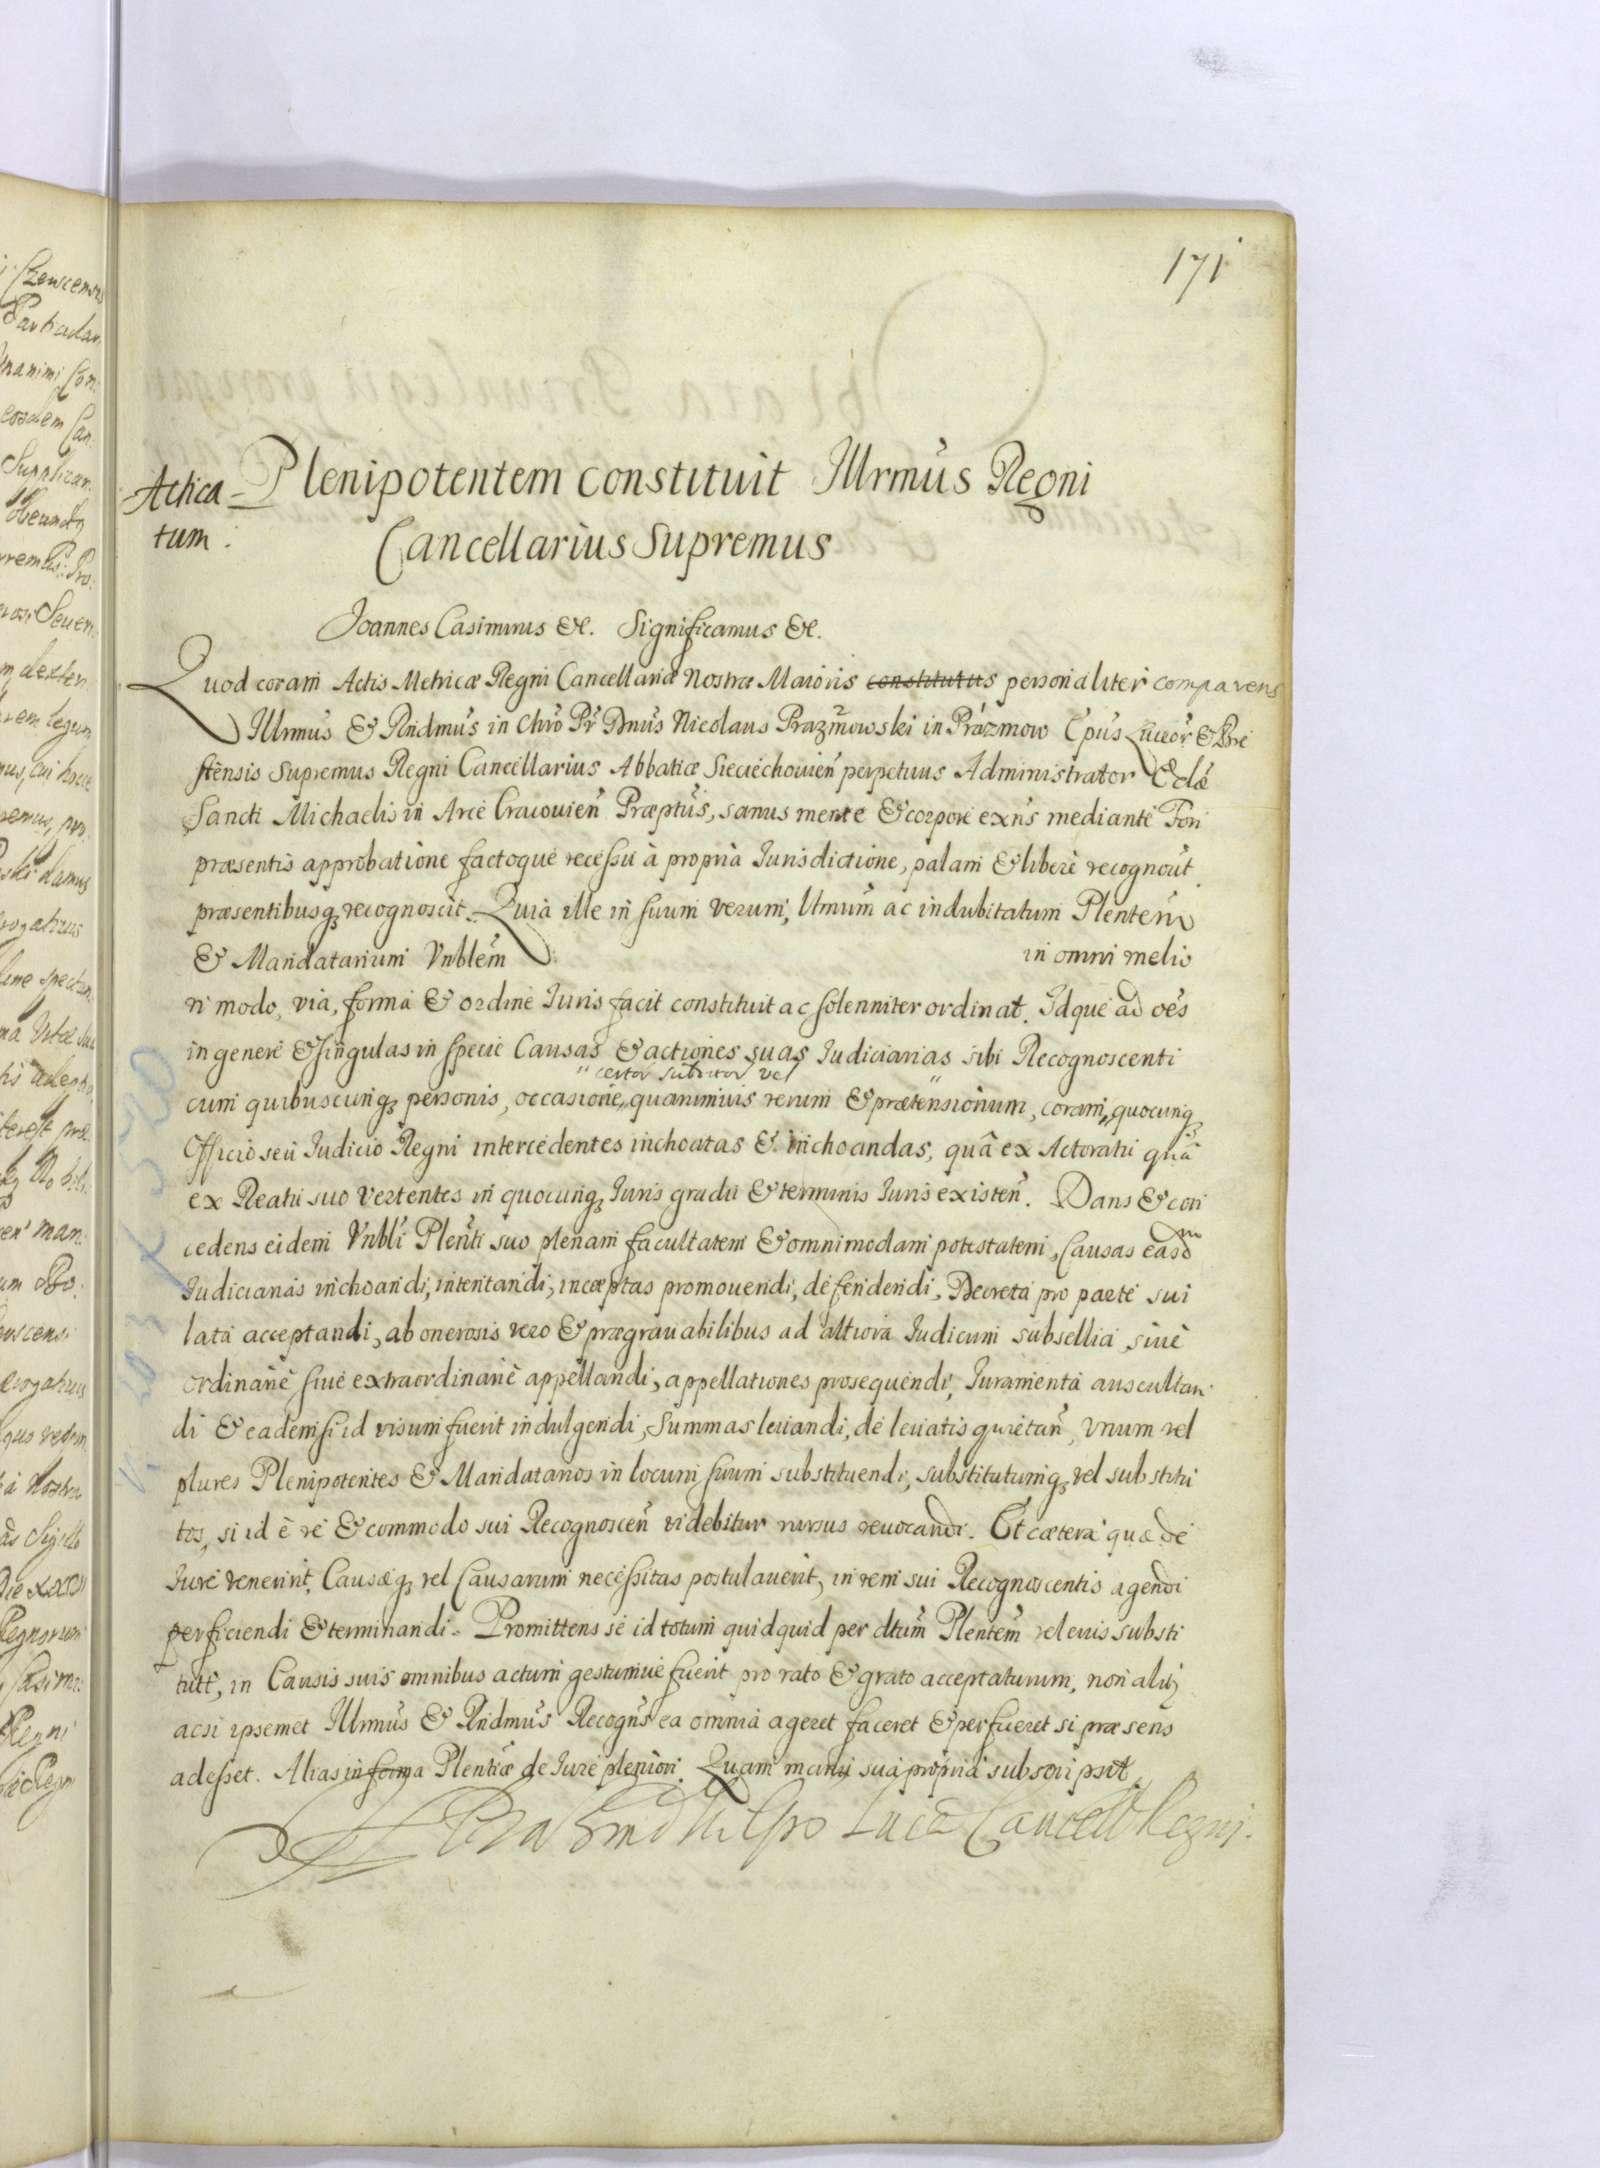 171
Actica
tum.
Plenipotentem constituit Illrmus Regni
Cancellarius Supremus
Joannes Casimirus &c. Significamus &c.
Quod coram Actis Metricæ Regni Cancellariæ Nostræ Maioris constitutus personaliter comparens
Illrmus & Rndmus in Chro Pr Dnus Nicolaus Prazmowski in Prazmow Epus Luceor & Bre
stensis Supremus Regni Cancellarius Abbatiæ Sieciechouien perpetuus Administrator Eclæ
Sancti Michaelis in Arce Cracouien Præptus, sanus mente & corpore exns mediante Fori
præsentis approbatione factoque recessu à propria Iurisdictione, palam & liberè recognouit
præsentibusq recognoscit. Quia ille in suum verum, ltmum ac indubitatum Plentem
& Mandatarium Vnblem in omni melio
ri modo, via, forma & ordine Iuris facit constituit ac solenniter ordinat. Idque ad oes
in genere & singulas in specie Causas & actiones suas Iudiciarias sibi Recognoscenti
certor subrtor vel
cum quibuscunq personis, occasione quarumuis rerum & prætensionum, coram quocunq
Officio seu Iudicio Regni intercedentes inchoatas & inchoandas, quâ ex Actoratu quâ
ex Reatu suo vertentes in quocunq Iuris gradu & terminis Iuris existen. Dans & con
cedens eidem Vnbli Plenti suo plenam facultatem & omnimodam potestatem, Causas easdm
Iudiciarias inchoandi, intentandi, incæptas promouendi, defendendi, Decreta pro parte sui
lata acceptandi, ab onerosis vero & prægrauabilibus ad altiora Iudicum subsellia siue
ordinariè siue extraordinariè appellandi, appellationes prosequendi, Iuramenta auscultan
di & eadem si id visum fuerit indulgendi, Summas leuandi, de leuatis quietan, Vnum vel
plures Plenipotentes & Mandatarios in locum suum substituendi, substitutumq vel substitu
tos, si id è re & commodo sui Recognoscen videbitur rursus reuocandi. Et cætera quæ de
Iure venerint, Causæq vel Causarum necessitas postulauerit, in rem sui Recognoscentis agendi
perficiendi & terminandi. Promittens se id totum quidquid per dtum Plentem vel eius substi
tutt, in Causis suis omnibus actum gestumue fuerit pro rato & grato accepturum, non alitr
acsi ipsemet Illrmus & Rndmus Recogns ea omnia ageret faceret & perficeret si præsens
adesset. Alias in forma Plentiæ de Iure pleniori. Quam manu sua propria subscripsit
Cancell Regni.